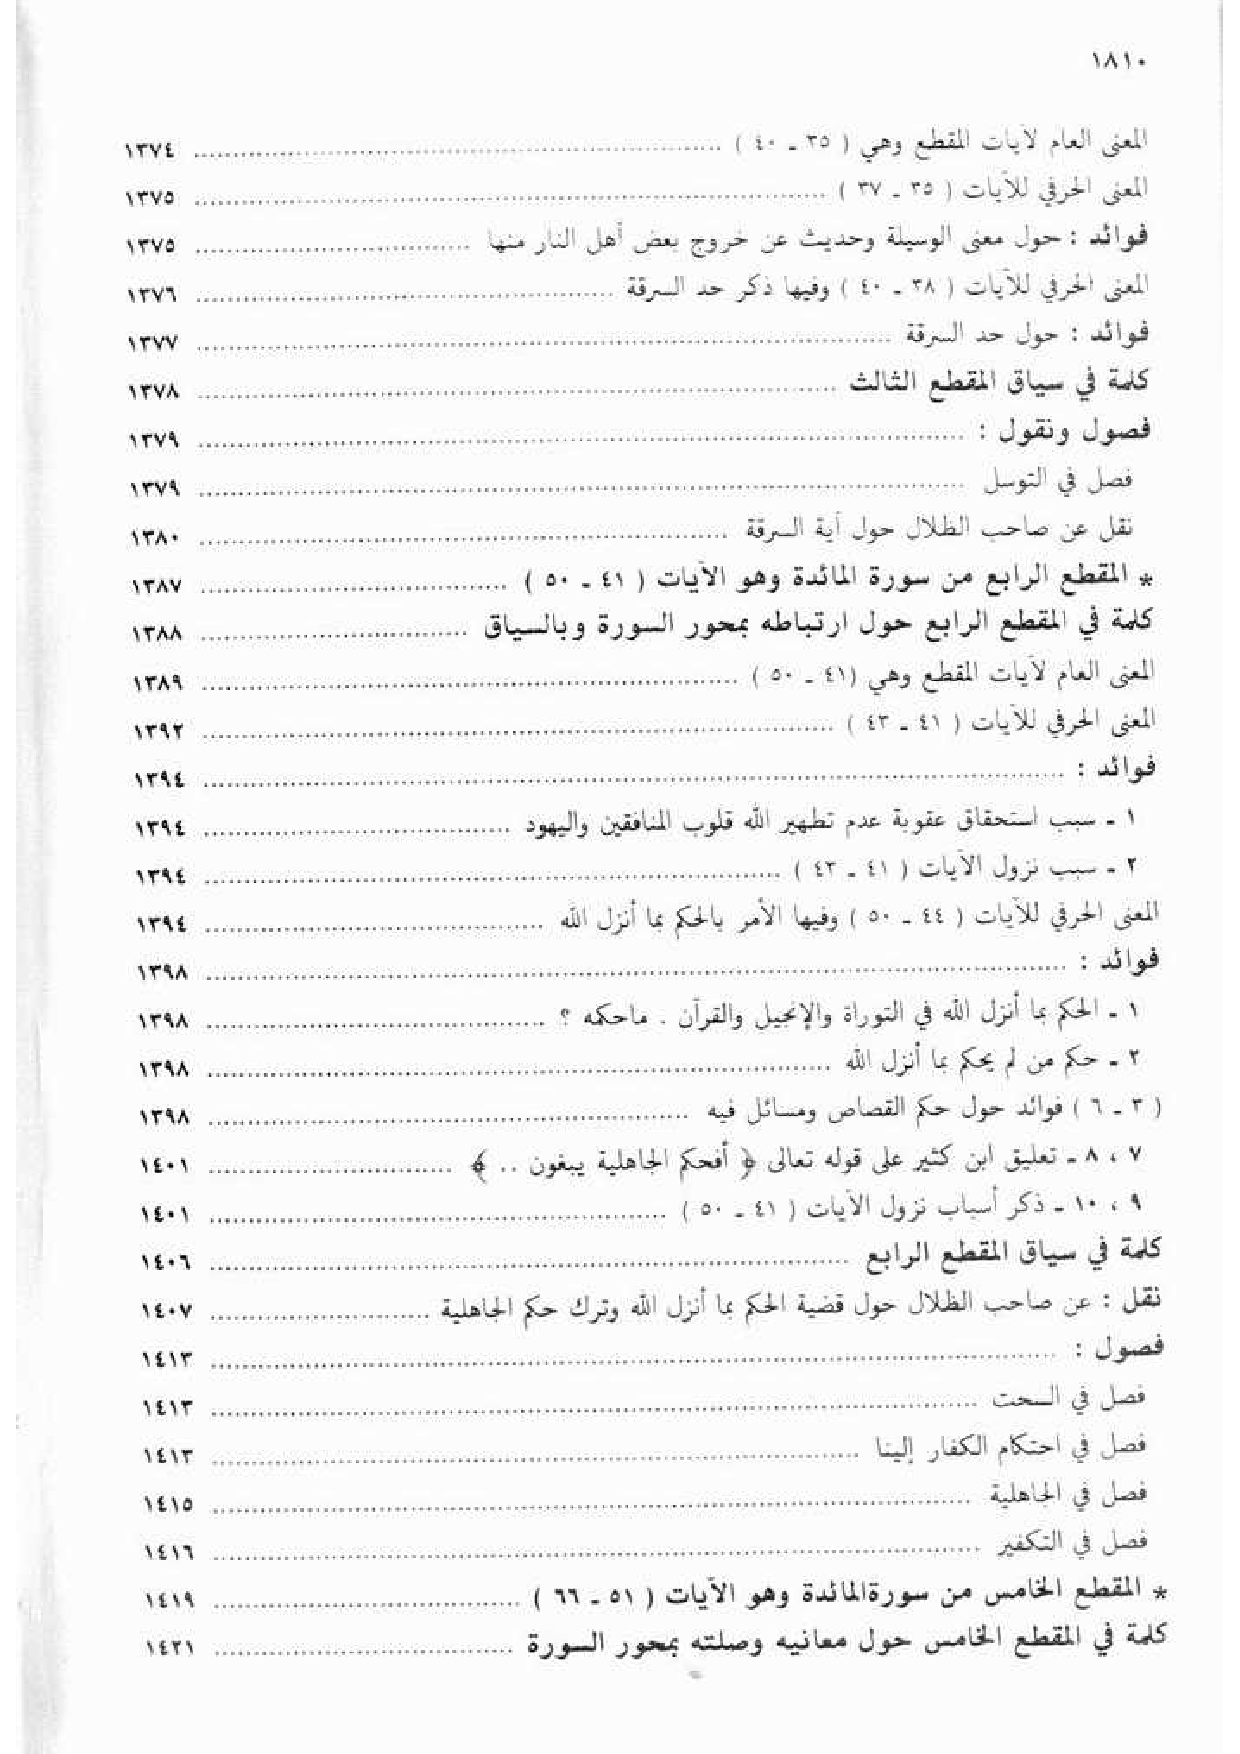 ١٨١٠
المعنى العام لآيات المقطع وهي ( ٣٥ ـ ٤٠ ) ........ ١٣٧٤
المعنى الحرفي للآيات ( ٣٥ ـ ٣٧ ) ........ ١٣٧٥
فوائد : حول معنى الوسيلة وحديث عن خروج بعض أهل النار منها ........ ١٣٧٥
المعنى الحرفي للآيات ( ٣٨ ـ ٤٠ ) وفيها ذكر حد السرقة ........ ١٣٧٦
فوائد : حول حد السرقة ........ ١٣٧٧
كلمة في سياق المقطع الثالث ........ ١٣٧٨
فصول ونقول : ........ ١٣٧٩
فصل في التوسل ........ ١٣٧٩
نقل عن صاحب الظلال حول آية السرقة ........ ١٣٨٠
* المقطع الرابع من سورة المائدة وهو الآيات ( ٤١ ـ ٥٠ ) ........ ١٣٨٧
كلمة في المقطع الرابع حول ارتباطه بمحور السورة وبالسياق ........ ١٣٨٨
المعنى العام لآيات المقطع وهي (٤١ ـ ٥٠ ) ........ ١٣٨٩
المعنى الحرفي للآيات ( ٤١ ـ ٤٣ ) ........ ١٣٩٢
فوائد : ........ ١٣٩٤
١ ـ سبب استحقاق عقوبة عدم تطهير الله قلوب المنافقين واليهود ........ ١٣٩٤
٢ ـ سبب نزول الآيات ( ٤١ ـ ٤٣ ) ........ ١٣٩٤
المعنى الحرفي للآيات ( ٤٤ ـ ٥٠ ) وفيها الأمر بالحكم بما أنزل الله ........ ١٣٩٤
فوائد : ........ ١٣٩٨
١ ـ الحكم بما أنزل الله في التوراة والإنجيل والقرآن . ماحكمه ؟ ........ ١٣٩٨
٢ ـ حكم من لم يحكم بما أنزل الله ........ ١٣٩٨
( ٣ ـ ٦ ) فوائد حول حكم القصاص ومسائل فيه ........ ١٣٩٨
٧ ، ٨ ـ تعليق ابن كثير على قوله تعالى ﴿ أفحكم الجاهلية يبغون .. ﴾ ........ ١٤٠١
٩ ، ١٠ ـ ذكر أسباب نزول الآيات ( ٤١ ـ ٥٠ ) ........ ١٤٠١
كلمة في سياق المقطع الرابع ........ ١٤٠٦
نقل : عن صاحب الظلال حول قضية الحكم بما أنزل الله وترك حكم الجاهلية ........ ١٤٠٧
فصول : ........ ١٤١٣
فصل في السحت ........ ١٤١٣
فصل في احتكام الكفار إلينا ........ ١٤١٣
فصل في الجاهلية ........ ١٤١٥
فصل في التكفير ........ ١٤١٦
* المقطع الخامس من سورةالمائدة وهو الآيات ( ٥١ ـ ٦٦ ) ........ ١٤١٩
كلمة في المقطع الخامس حول معانيه وصلته بمحور السورة ........ ١٤٢١